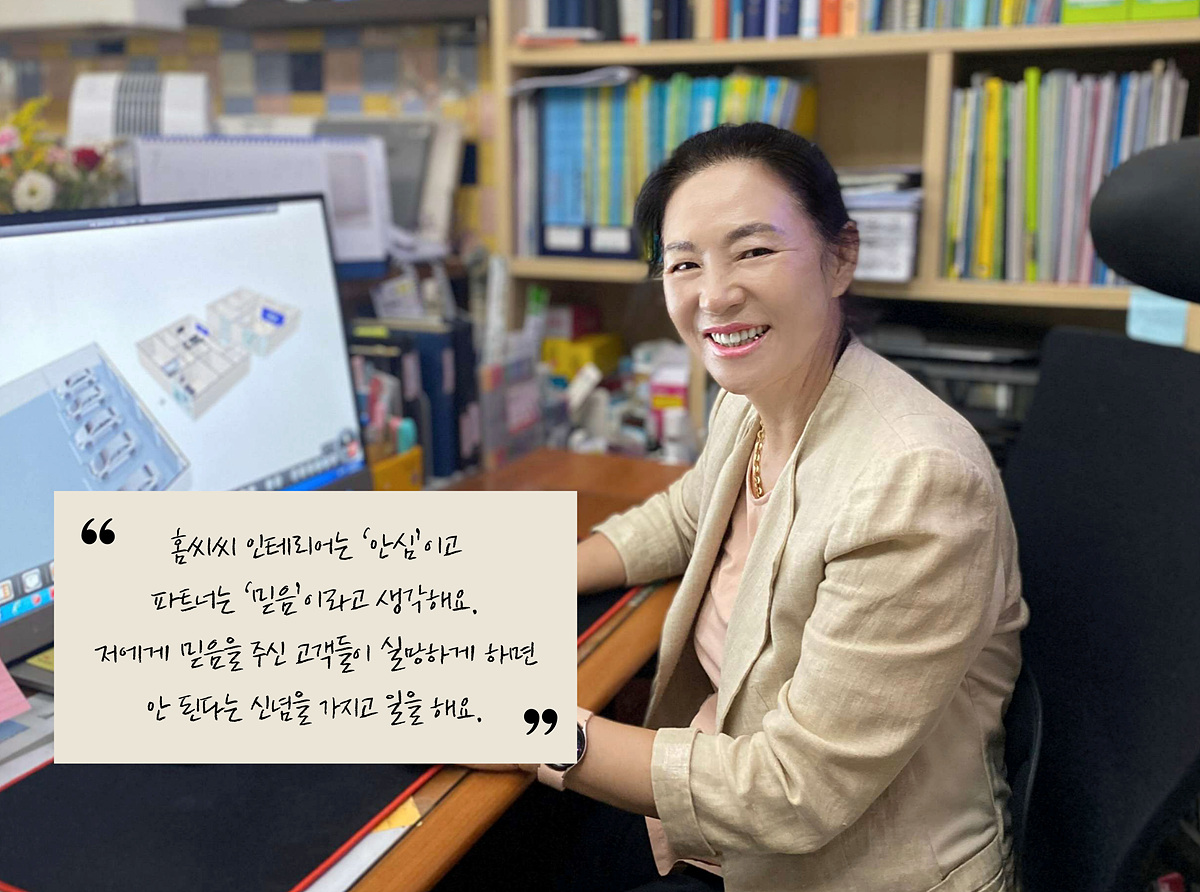 ❝
홈씨씨 인테리어는 ‘안심’이고
파트너는 ‘믿음’이라고 생각해요.
저에게 믿음을 주신 고객들이 실망하게 하면
안 된다는 신념을 가지고 일을 해요.
❞